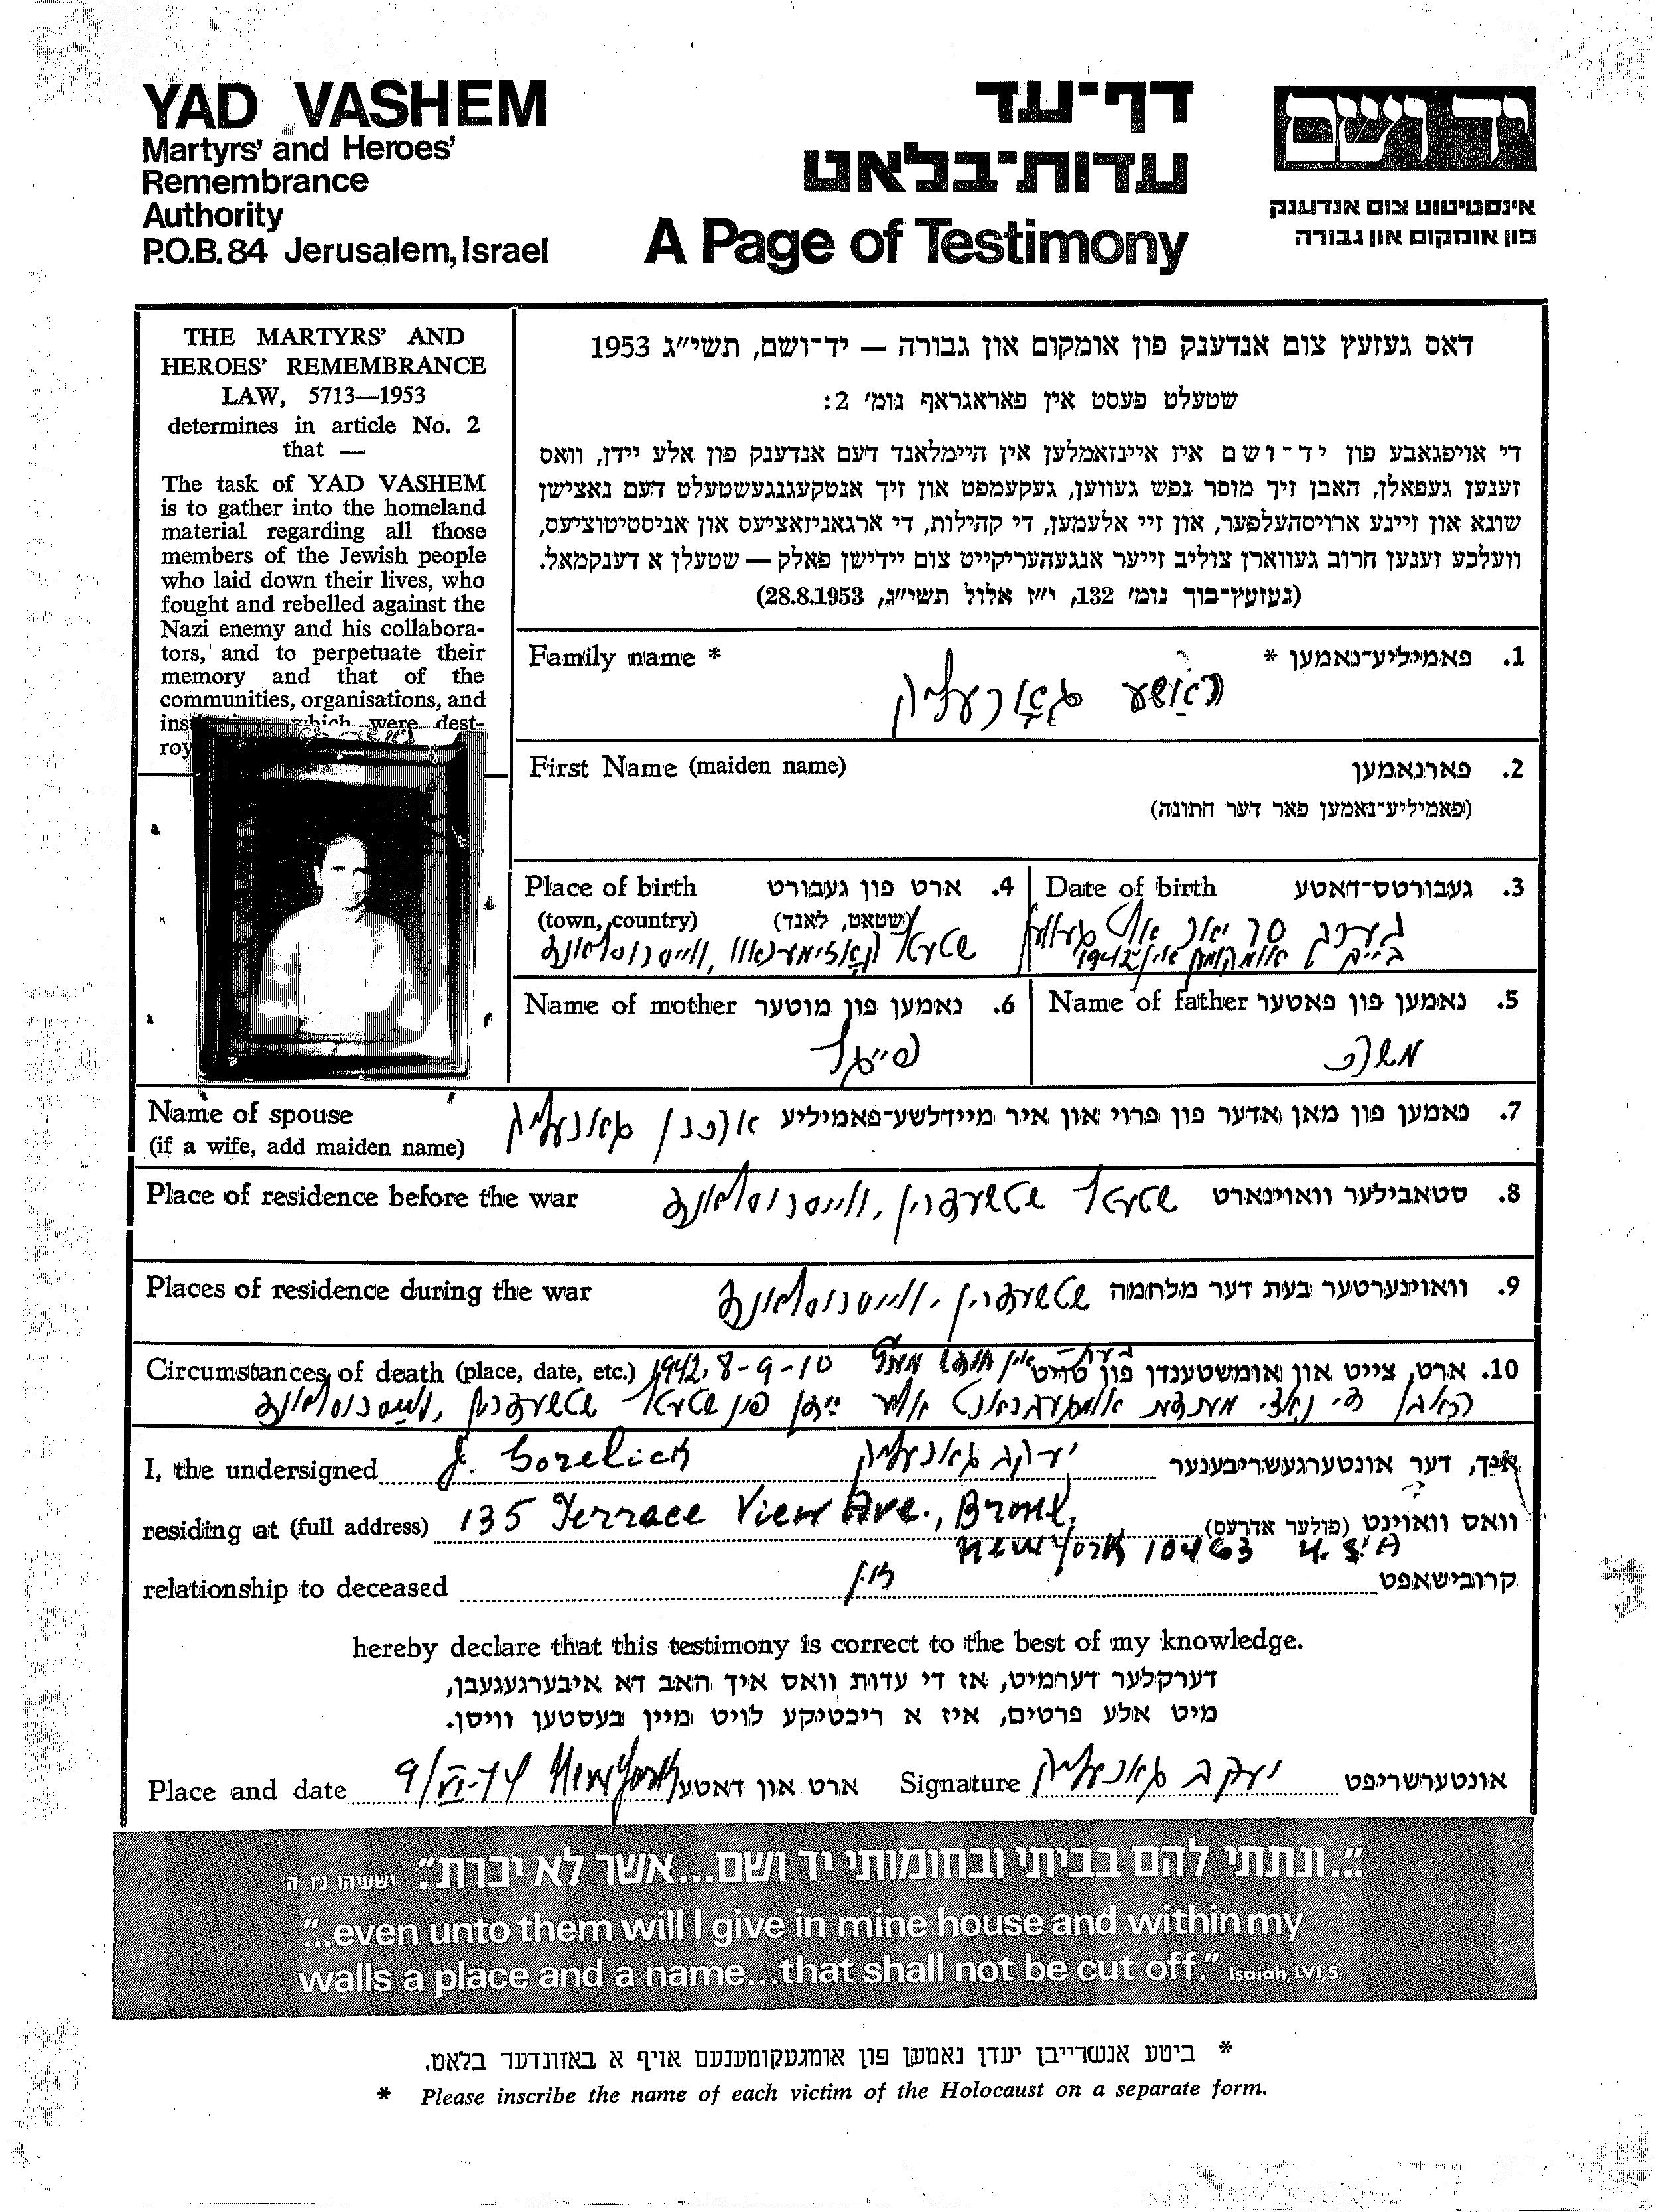 YAD VASHEM
Martyrs' and Heroes'
Remembrance
Authority
P.O.B. 84 Jerusalem, Israel
דף־עד
עדות־בלאט
A Page of Testimony
יד ושם
אינסטיטוט צום אנדענק
פון אומקום און גבורה
THE MARTYRS' AND
HEROES' REMEMBRANCE
LAW, 5713—1953
determines in article No. 2
that —
The task of YAD VASHEM
is to gather into the homeland
material regarding all those
members of the Jewish people
who laid down their lives, who
fought and rebelled against the
Nazi enemy and his collabora-
tors, and to perpetuate their
memory and that of the
communities, organisations, and
which were dest-
roy
דאס געזעץ צום אנדענק פון אומקום און גבורה — יד־ושם, תשי״ג 1953
שטעלט פעסט אין פאראגראף נומ׳ 2:
די אויפגאבע פון יד־ושם איז איינזאמלען אין היימלאנד דעם אנדענק פון אלע יידן, וואס
זענען געפאלן, האבן זיך מוסר נפש געווען, געקעמפט און זיך אנטקעגנגעשטעלט דעם נאצישן
שונא און זיינע ארויסהעלפער, און זיי אלעמען, די קהילות, די ארגאניזאציעס און אניסטיטוציעס,
וועלכע זענען חרוב געווארן צוליב זייער אנגעהעריקייט צום יידישן פאלק — שטעלן א דענקמאל.
(געזעץ־בוך נומ׳ 132, י״ז אלול תשי״ג, 28.8.1953)
Family name * פאמיליע־נאמען * .1
ראשע גארעליק
First Name (maiden name) פארנאמען .2
(פאמיליע־נאמען פאר דער חתונה)
Place of birth ארט פון געבורט .4
(town, country) (שטאט, לאנד)
שטעטל ווייסרוסלאנד
Date of birth געבורטס־דאטע .3
יאר אלט געווען
1942
Name of mother נאמען פון מוטער .6
פייגל
Name of father נאמען פון פאטער .5
Name of spouse נאמען פון מאן אדער פון פרוי און איר מיידלשע־פאמיליע .7
(if a wife, add maiden name) גארעליק
Place of residence before the war סטאבילער וואוינארט .8
שטעטל שטשעדרין, ווייסרוסלאנד
Places of residence during the war וואוינערטער בעת דער מלחמה .9
שטשעדרין, ווייסרוסלאנד
Circumstances of death (place, date, etc.) ארט, צייט און אומשטענדן פון טויט .10
1942, 8-9-10
די נאצי אלע יידן פון שטעטל שטשעדרין, ווייסרוסלאנד
I, the undersigned J. Gorelick יעקב גארעליק איך, דער אונטערגעשריבענער
residing at (full address) 135 Terrace View Ave., Bronx, וואס וואוינט (פולער אדרעס)
New York 10463 U.S.A
relationship to deceased זון קרובישאפט
hereby declare that this testimony is correct to the best of my knowledge.
דערקלער דערמיט, אז די עדות וואס איך האב דא איבערגעגעבן,
מיט אלע פרטים, איז א ריכטיקע לויט מיין בעסטען וויסן.
Place and date 9/VI-74 New York ארט און דאטע Signature יעקב גארעליק אונטערשריפט
״...ונתתי להם בביתי ובחומותי יד ושם...אשר לא יכרת.״ ישעיהו נו, ה׳
"...even unto them will I give in mine house and within my
walls a place and a name...that shall not be cut off." Isaiah, LVI, 5
* ביטע אנשרייבן יעדן נאמען פון אומגעקומענעם אויף א באזונדער בלאט.
* Please inscribe the name of each victim of the Holocaust on a separate form.